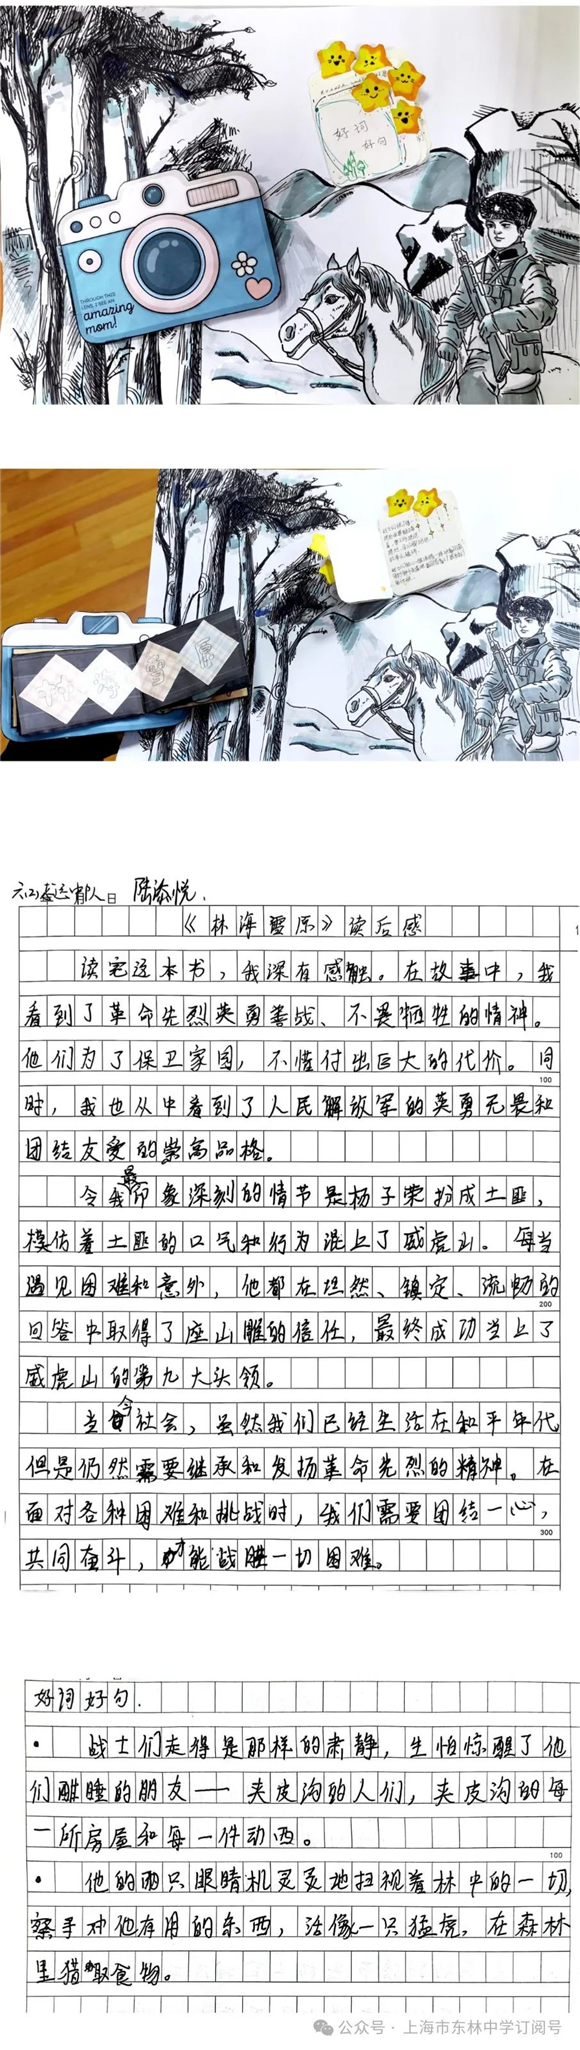 好词
好句
THROUGH THIS
LENS, I SEE AN
amazing
mom!
林 海 雪 原
陆添悦
《林海雪原》读后感
读完这本书，我深有感触。在故事中，我
看到了革命先烈英勇善战、不畏牺牲的精神。
他们为了保卫家园，不惜付出巨大的代价。同
100
时，我也从中看到了人民解放军的英勇无畏和
团结友爱的崇高品格。
令我最印象深刻的情节是杨子荣扮成土匪，
模仿着土匪的口气和行为混上了威虎山。每当
遇见困难和意外，他都在坦然、镇定、流畅的
200
回答中取得了座山雕的信任，最终成功当上了
威虎山的第九大头领。
当今社会，虽然我们已经生活在和平年代
但是仍然需要继承和发扬革命先烈的精神。在
面对各种困难和挑战时，我们需要团结一心，
300
共同奋斗，才能战胜一切困难。
好词好句.
• 战士们走得是那样的肃静，生怕惊醒了他
们酣睡的朋友——夹皮沟的人们，夹皮沟的每
一所房屋和每一件动西。
100
• 他的两只眼睛机灵灵地扫视着林中的一切，
寻对他有用的东西，活像一只猛虎，在森林
里猎取食物。
公众号·上海市东林中学订阅号